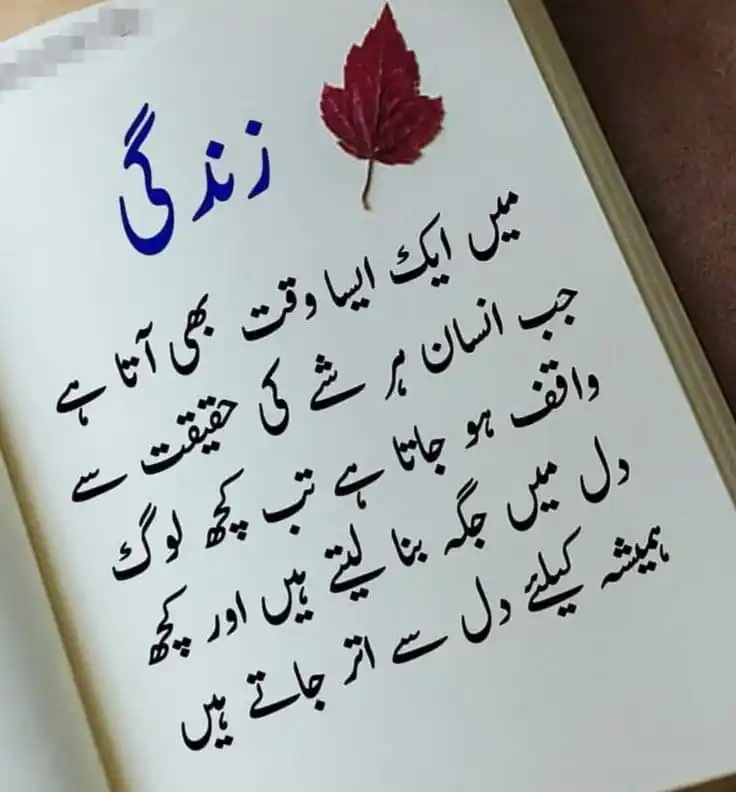 زندگی
میں ایک ایسا وقت بھی آتا ہے
جب انسان ہر شے کی حقیقت سے
واقف ہو جاتا ہے تب کچھ لوگ
دل میں جگہ بنا لیتے ہیں اور کچھ
ہمیشہ کیلئے دل سے اتر جاتے ہیں